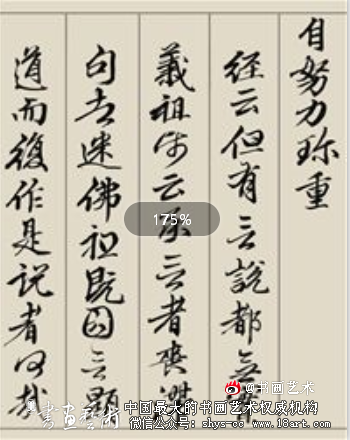 自努力珍重
經云但有言說都無
義祖师云承言者喪滞
句者迷佛祖既因言顯
道而復作是説者何哉
175%
@书画艺术
書画藝術
中国最大的书画艺术权威机构
微信公众号：shys-cc www.18art.com